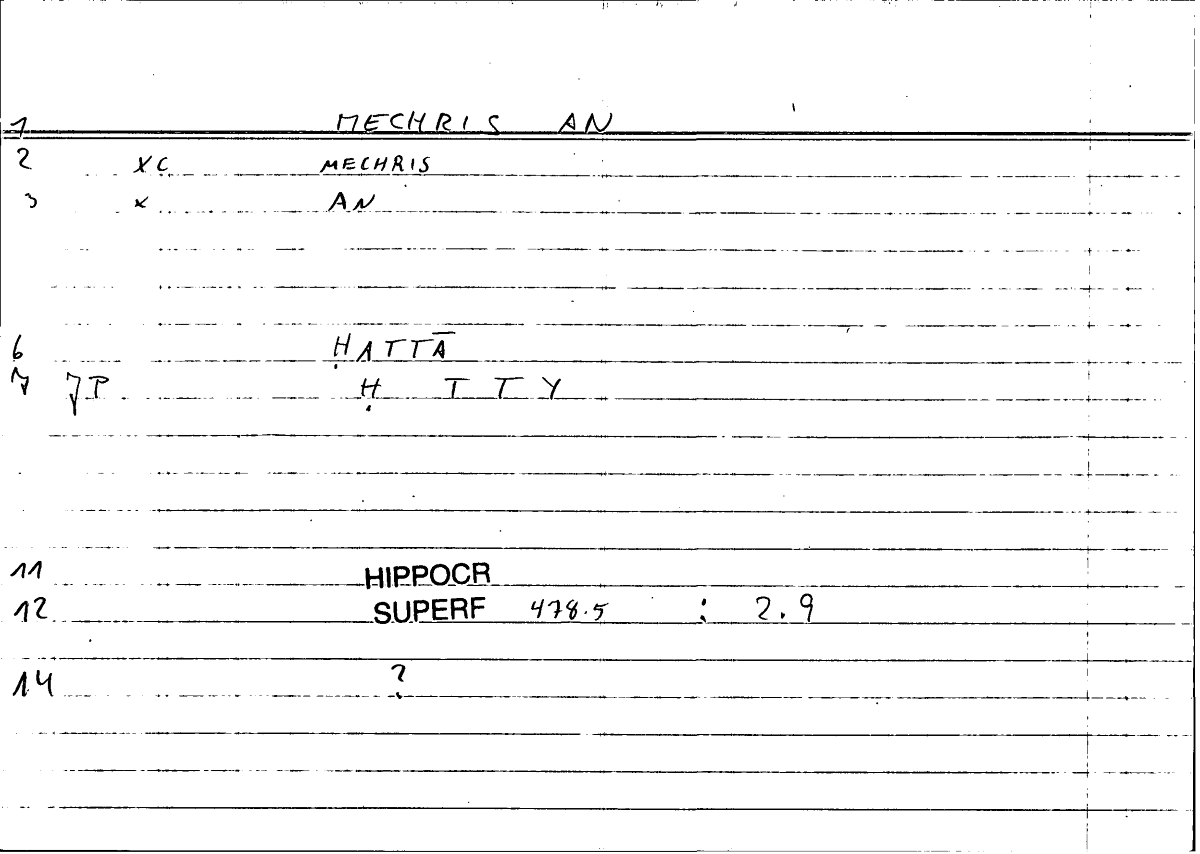 1 MECHRIS AN
2 XC MECHRIS
3 x AN
6 ḤATTĀ
7 JP Ḥ TTY
11 HIPPOCR
12 SUPERF 478.5 : 2.9
14 ?